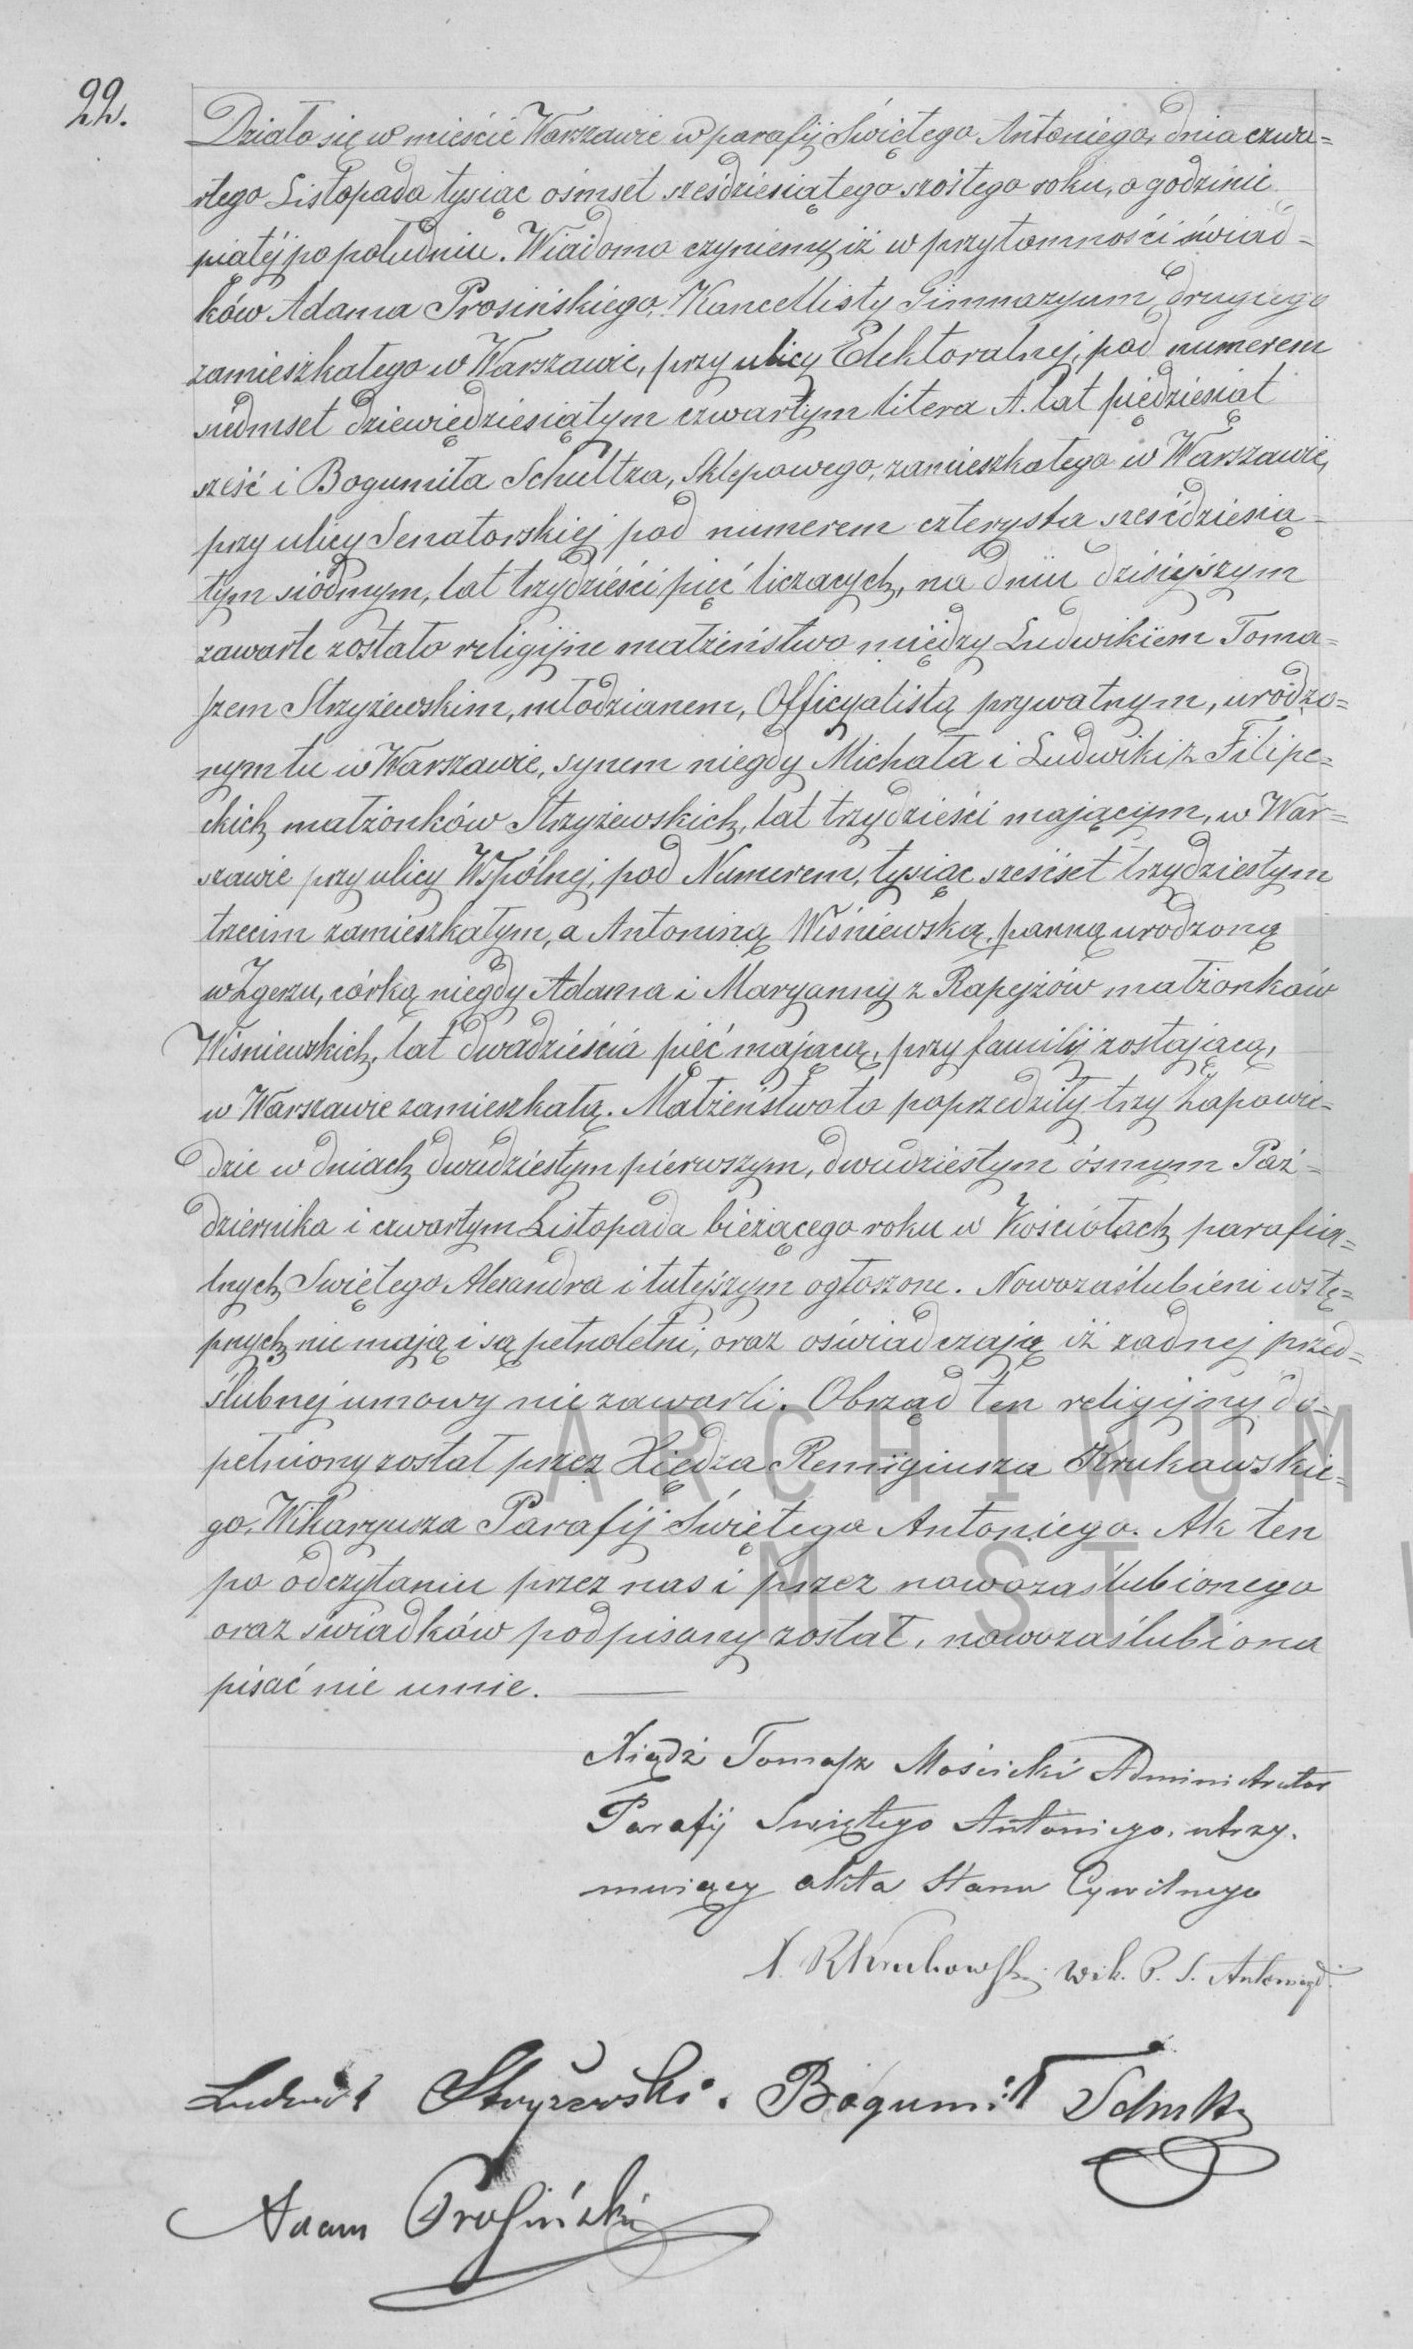 22.
Działo się w mieście Warszawie w parafij Świętego Antoniego, dnia czwar=
tego Listopada tysiąc ośmset sześdziesiątego szóstego roku, o godzinie
piątej po południu. Wiadomo czyniemy iż w przytomności świad=
ków Adama Prosińskiego, Kancellisty Gimnazyum drugiego
zamieszkałego w Warszawie, przy ulicy Elektoralnej, pod numerem
siedmset dziewiędziesiątym czwartym litera A. lat piędziesiąt
sześć i Bogumiła Schultza, Sklepowego, zamieszkałego w Warszawie,
przy ulicy Senatorskiej pod numerem czterysta sześćdziesią=
tym siódmym, lat trzydzieści pięć liczących, na dniu dzisiejszym
zawarte zostało religijne małżeństwo między Ludwikiem Toma=
szem Strzyżewskim, młodzianem, Officyalistą prywatnym, urodzo=
nym tu w Warszawie, synem niegdy Michała i Ludwiki z Filipe=
ckich małżonków Strzyżewskich, lat trzydzieści mającym, w War=
szawie przy ulicy Wspólnej, pod Numerem, tysiąc sześćset trzydziestym
trzecim zamieszkałym, a Antoniną Wiśniewską, panną urodzoną
w Zgerzu, córką niegdy Adama i Maryanny z Rapejzów małżonków
Wiśniewskich, lat dwadzieścia pięć mającą, przy familij zostającą,
w Warszawie zamieszkałą. Małżeństwo to poprzedziły trzy Zapowie=
dzie w dniach dwudziestym pierwszym, dwudziestym ósmym Paź=
dziernika i czwartym Listopada bieżącego roku w Kościołach parafial=
lnych Swiętego Alexandra i tutejszym ogłoszone. Nowozaślubieni wstę=
pnych nie mają i są pełnoletni, oraz oświadczają iż żadnej przed=
ślubnej umowy nie zawarli. Obrząd ten religijny do=
pełniony został przez Xiędza Remigiusza Krukowskie=
go, Wikaryusza Parafij Świętego Antoniego. Akt ten
po odczytaniu przez nas i przez nowozaślubionego
oraz świadków podpisany został, nowozaślubiona
pisać nie umie.
Xiądz Tomasz Mościcki Administrator
Parafij Swiętego Antoniego, utrzy.
muiący akta Stanu Cywilnego
X. R Krukowski wik. P. S. Antonieg.
Ludwik Strzyżewski. Bogumił Schultz
Adam Prosiński
ARCHIWUM
M. ST.